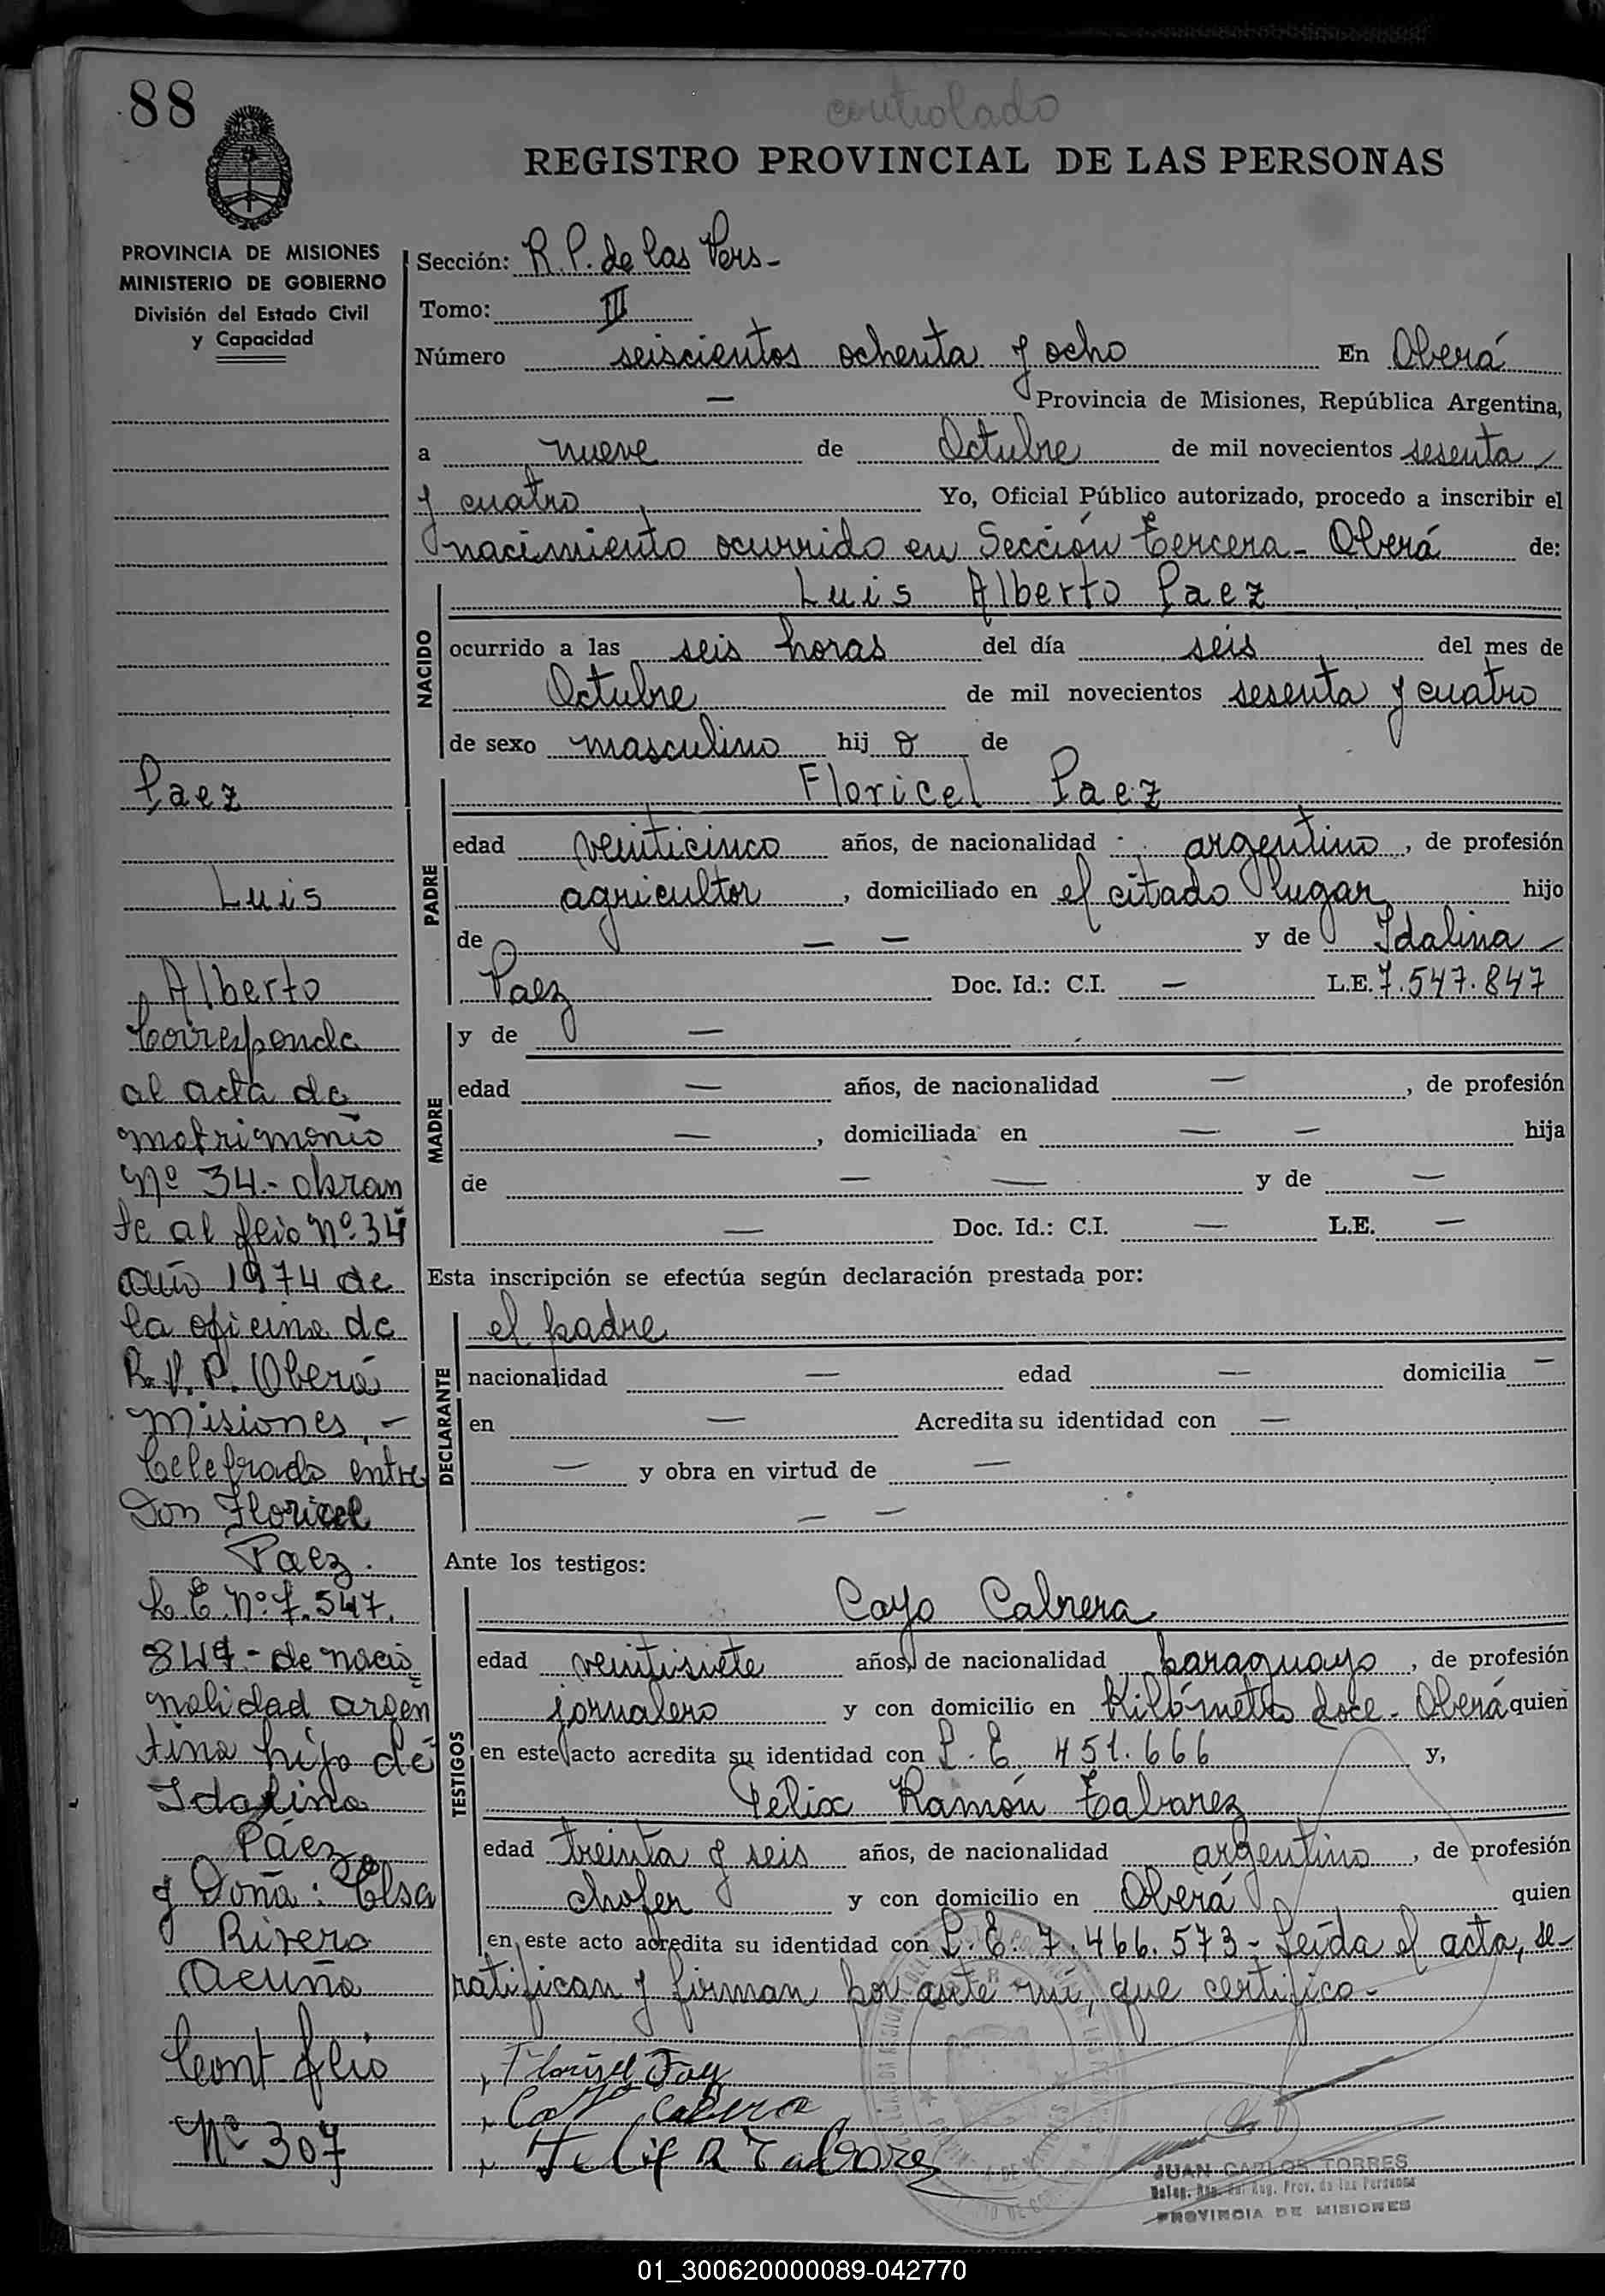 88
controlado
REGISTRO PROVINCIAL DE LAS PERSONAS
PROVINCIA DE MISIONES
MINISTERIO DE GOBIERNO
División del Estado Civil
y Capacidad
Paez
Luis
Alberto
Corresponde
al acta de
matrimonio
Nº 34.- obran
te al flio Nº 34
año 1974 de
la oficina de
R. P. P. Oberá
Misiones,-
Celebrado entre
Don Floricel
Paez.
L E Nº 7.547.
847- de nacio
nalidad argen
tina hijo de
Idalina
Páez
y Doña: Elsa
Rivero
Acuña
Cont flio
Nº 307
Sección: R. P. de las Pers-
Tomo: III
Número seiscientos ochenta y ocho En Oberá
— Provincia de Misiones, República Argentina,
a nueve de Octubre de mil novecientos sesenta
y cuatro Yo, Oficial Público autorizado, procedo a inscribir el
nacimiento ocurrido en Sección Tercera- Oberá de:
NACIDO
Luis Alberto Paez
ocurrido a las seis horas del día seis del mes de
Octubre de mil novecientos sesenta y cuatro
de sexo masculino hij o de
PADRE
Floricel Paez
edad veinticinco años, de nacionalidad argentino, de profesión
agricultor, domiciliado en el citado lugar hijo
de — — y de Idalina
Paez Doc. Id.: C.I. — L.E. 7.547.847
MADRE
y de —
edad — años, de nacionalidad —, de profesión
—, domiciliada en — — hija
de — — y de —
— Doc. Id.: C.I. — L.E. —
Esta inscripción se efectúa según declaración prestada por:
DECLARANTE
el padre
nacionalidad — edad — domicilia —
en — Acredita su identidad con —
— y obra en virtud de —
— —
Ante los testigos:
TESTIGOS
Cayo Cabrera
edad veintisiete años, de nacionalidad paraguayo, de profesión
jornalero y con domicilio en Kilómetro doce- Oberá quien
en este acto acredita su identidad con L. E. 451.666 y,
Felix Ramón Tabarez
edad treinta y seis años, de nacionalidad argentino, de profesión
chofer y con domicilio en Oberá quien
en este acto acredita su identidad con L. E. 7.466.573- Leída el acta, se-
ratifican y firman por ante mí, que certifico-
Cabrera
Felix R Tabarez
JUAN CARLOS TORRES
Prov. de las Personas
PROVINCIA DE MISIONES
01_300620000089-042770